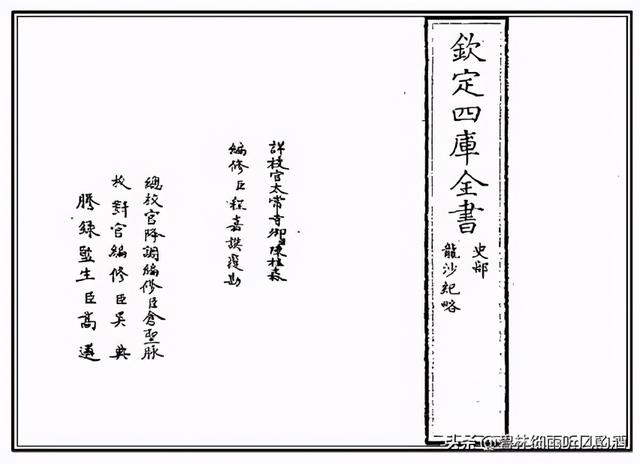 欽定四庫全書
史部
龍沙紀略
詳校官太常寺卿臣陳桂森
編修臣程嘉謨覆勘
總校官降調編修臣倉聖脈
校對官編修臣吳典
謄錄監生臣高